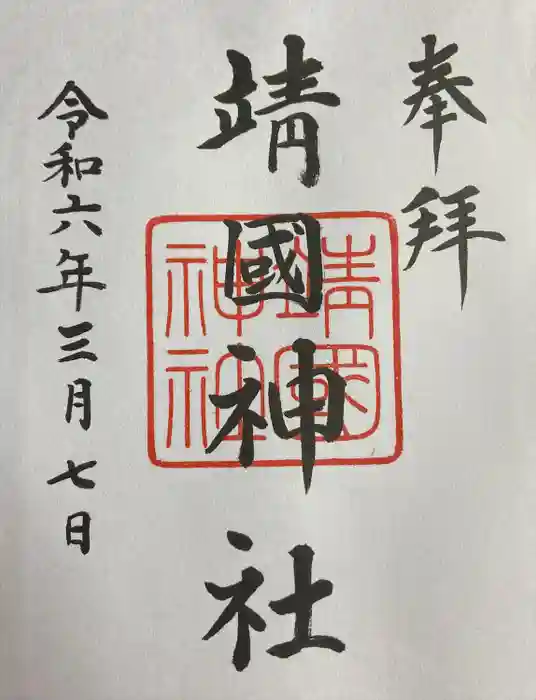 奉拜
靖國神社
靖國
神社
令和六年三月七日